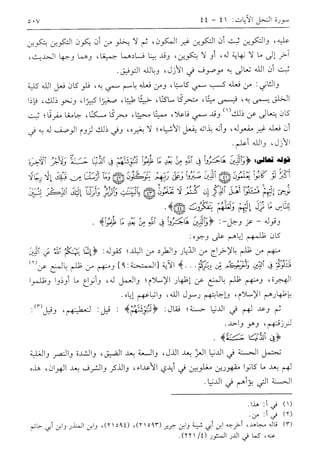 سورة النحل الآيات: ٤١ - ٤٤ ٥٠٧
عليه، والتكوين ثبت أن التكوين غير المكون، ثم لا يخلو من أن يكون التكوين بتكوين
آخر إلى ما لا نهاية له، أو لا بتكوين، وقد بينا فسادهما جميعًا، وهما وجها الحديث،
ثبت أن الله تعالى به موصوف في الأزل، وبالله التوفيق.
والثاني: من فعله كسب سمي كاسبًا، ومن فعله باسم سمي به، فلو كان فعل الله كلية
الخلق يسمى به، فيسمى ميتًا، متحركًا ساكنًا، خبيثًا طيبًا، صغيرًا كبيرًا، ونحو ذلك، فإذا
كان يتعالى عن ذلك(١) وقد سمي فاعلا، مميتًا محييًا، محركًا مسكنًا، جامعًا مفرقًا؛ ثبت
أن فعله غير مفعوله، وأنه بذاته يفعل الأشياء؛ لا بغيره، وفي ذلك لزوم الوصف له به في
الأزل، والله أعلم.
قوله تعالى: ﴿وَالَّذِينَ هَاجَرُوا فِي اللَّهِ مِنْ بَعْدِ مَا ظُلِمُوا لَنُبَوِّئَنَّهُمْ فِي الدُّنْيَا حَسَنَةً وَلَأَجْرُ الْآخِرَةِ
أَكْبَرُ لَوْ كَانُوا يَعْلَمُونَ ﴿٤١﴾ الَّذِينَ صَبَرُوا وَعَلَى رَبِّهِمْ يَتَوَكَّلُونَ ﴿٤٢﴾ وَمَا أَرْسَلْنَا مِنْ قَبْلِكَ إِلَّا رِجَالًا
نُوحِي إِلَيْهِمْ فَاسْأَلُوا أَهْلَ الذِّكْرِ إِنْ كُنْتُمْ لَا تَعْلَمُونَ ﴿٤٣﴾ بِالْبَيِّنَاتِ وَالزُّبُرِ وَأَنْزَلْنَا إِلَيْكَ الذِّكْرَ لِتُبَيِّنَ
لِلنَّاسِ مَا نُزِّلَ إِلَيْهِمْ وَلَعَلَّهُمْ يَتَفَكَّرُونَ ﴿٤٤﴾﴾.
وقوله - عز وجل-: ﴿وَالَّذِينَ هَاجَرُوا فِي اللَّهِ مِنْ بَعْدِ مَا ظُلِمُوا﴾.
كان ظلمهم إياهم على وجوه:
منهم من ظلم بالإخراج من الديار والطرد من البلد؛ كقوله: ﴿إِنَّمَا يَنْهَاكُمُ اللَّهُ عَنِ الَّذِينَ
قَاتَلُوكُمْ فِي الدِّينِ وَأَخْرَجُوكُمْ مِنْ دِيَارِكُمْ...﴾ الآية [الممتحنة: ٩] ومنهم من ظلم بالمنع عن(٢)
الهجرة، ومنهم ظلم بالمانع عن إظهار الإسلام؛ والعمل له، وأنواع ما أوذوا وظلموا
بإظهارهم الإسلام، وإجابتهم رسول الله، واتباعهم إياه.
ثم وعد لهم في الدنيا حسنة؛ فقال: ﴿لَنُبَوِّئَنَّهُمْ﴾: قيل: لنعطينهم، وقيل(٣):
لنرزقنهم، وهو واحد.
﴿فِي الدُّنْيَا حَسَنَةً﴾.
تحتمل الحسنة في الدنيا العزّ بعد الذل، والسعة بعد الضيق، والشدة والنصر والغلبة
لهم بعد ما كانوا مقهورين مغلوبين في أيدي الأعداء، والذكر والشرف بعد الهوان، هذه
الحسنة التي بوأهم في الدنيا.
(١) في أ: هذا.
(٢) في أ: من.
(٣) قاله مجاهد، أخرجه ابن أبي شيبة وابن جرير (٢١٥٩٣)، (٢١٥٩٤)، وابن المنذر وابن أبي حاتم
عنه، كما في الدر المنثور (٤/ ٢٢١).